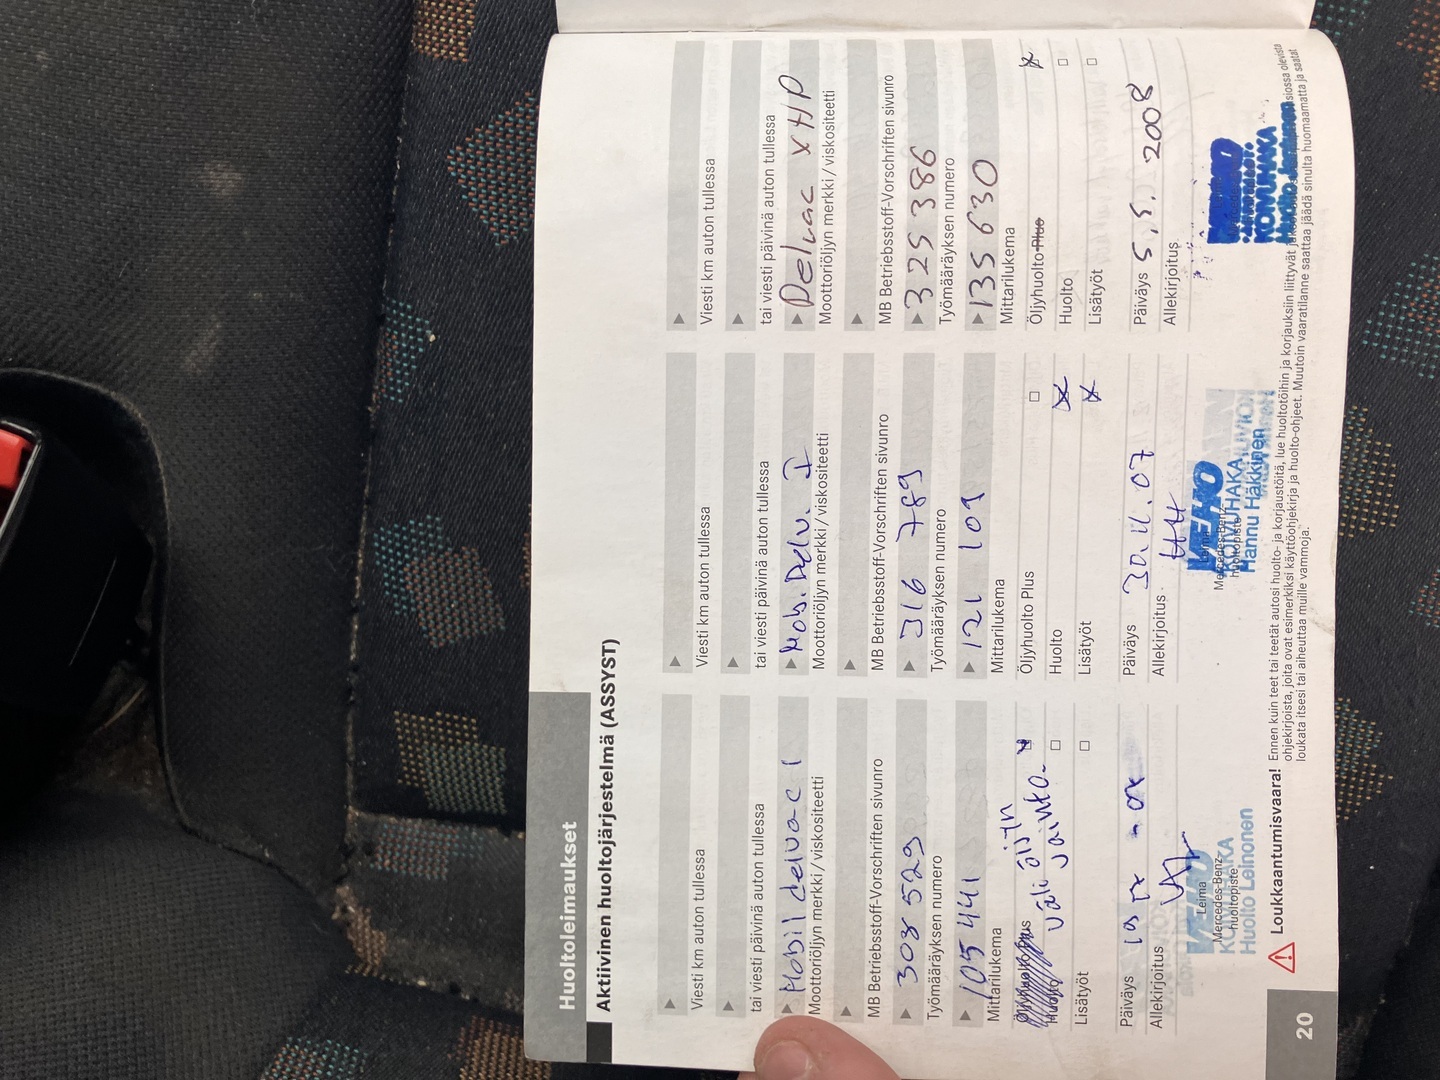 Huoltoleimaukset
Aktiivinen huoltojärjestelmä (ASSYST)
Viesti km auton tullessa
tai viesti päivinä auton tullessa
Mobil delvac 1
Moottoriöljyn merkki / viskositeetti
MB Betriebsstoff-Vorschriften sivunro
308 529
Työmääräyksen numero
105 441
Mittarilukema
väli öljyn
vaihto.
Lisätyöt
Päiväys 19
Allekirjoitus
Leima
Mercedes-Benz-
huoltopiste
VEHO
Huolto Leinonen
Viesti km auton tullessa
tai viesti päivinä auton tullessa
Mob. Delv. I
Moottoriöljyn merkki / viskositeetti
MB Betriebsstoff-Vorschriften sivunro
316 789
Työmääräyksen numero
121 109
Mittarilukema
Öljyhuolto Plus
Huolto
Lisätyöt
Päiväys 30.11.07
Allekirjoitus HH
VEHO
Mercedes-Benz-
huoltopiste
Hannu Häkkinen
Viesti km auton tullessa
tai viesti päivinä auton tullessa
Delvac XHP
Moottoriöljyn merkki / viskositeetti
MB Betriebsstoff-Vorschriften sivunro
325 386
Työmääräyksen numero
135 630
Mittarilukema
Öljyhuolto Plus
Huolto
Lisätyöt
Päiväys 5.5. 2008
Allekirjoitus
VEHO
KOIVUHAKA
Loukkaantumisvaara! Ennen kuin teet tai teetät autosi huolto- ja korjaustöitä, lue huoltotöihin ja korjauksiin liittyvät olevista
ohjekirjoista, joita ovat esimerkiksi käyttöohjekirja ja huolto-ohjeet. Muutoin vaaratilanne saattaa jäädä sinulta huomaamatta ja saatat
loukata itsesi tai aiheuttaa muille vammoja.
20